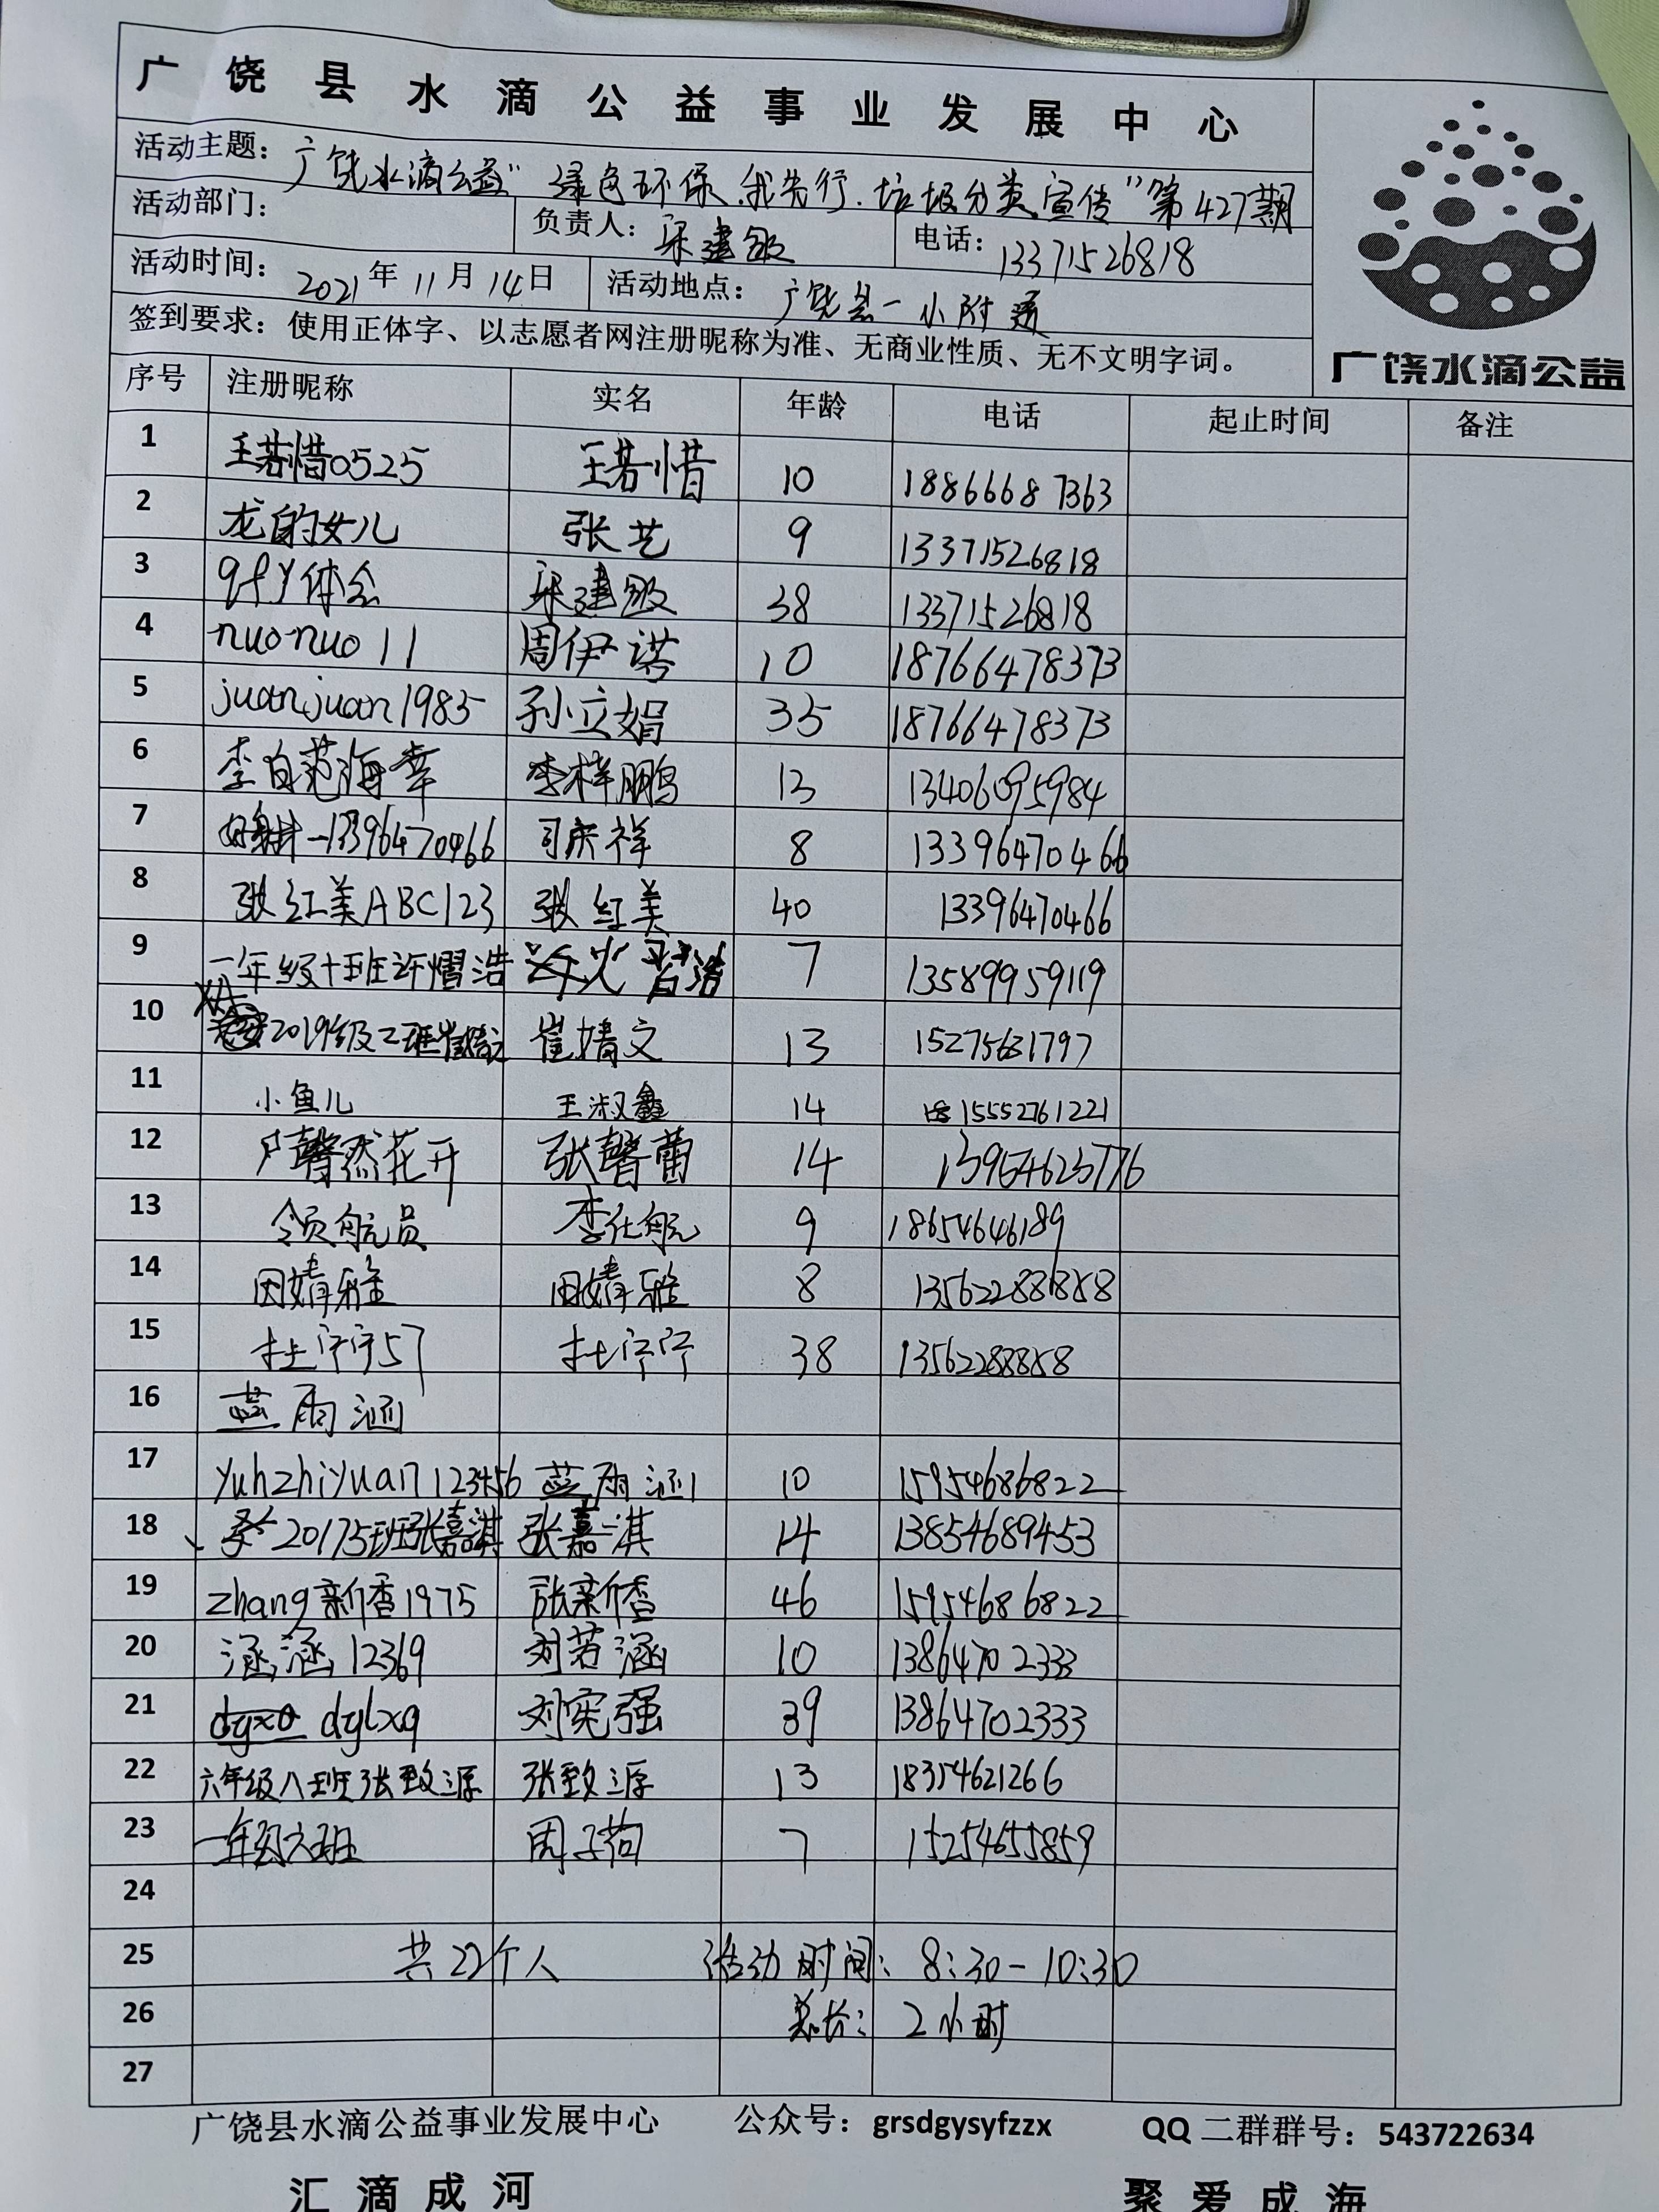 广饶县水滴公益事业发展中心
活动主题：广饶水滴公益"绿色环保.我先行.垃圾分类宣传"第427期
活动部门： 负责人：梁建敏 电话：13371526818
活动时间：2021年11月14日 活动地点：广饶县一小附近
签到要求：使用正体字、以志愿者网注册昵称为准、无商业性质、无不文明字词。
广饶水滴公益
序号 注册昵称 实名 年龄 电话 起止时间 备注
1 王若惜0525 王若惜 10 18866687363
2 龙的女儿 张艺 9 13371526818
3 qfy体会 梁建敏 38 13371526818
4 nuonuo11 周伊诺 10 18766478373
5 juanjuan1985 孙立娟 35 18766478373
6 李白范海幸 李梓鹏 13 13406095984
7 一13396470466 司庆祥 8 13396470466
8 张红美ABC123 张红美 40 13396470466
9 一年级十班许熠浩 许熠浩 7 13589959119
10 2019级二班崔婧文 崔婧文 13 15275631797
11 小鱼儿 王淑鑫 14 15552761221
12 馨然花开 张馨蕾 14 13964623776
13 领航员 李仕航 9 18654646189
14 田婧雅 田婧雅 8 13562288888
15 杜宁宁57 杜宁宁 38 13562288888
16 蓝雨涵
17 yuhzhiyuan123456 蓝雨涵 10 15954686822
18 20175班张嘉淇 张嘉淇 14 13854689453
19 zhang新香1975 张新香 46 15954686822
20 涵涵12369 刘若涵 10 13864702333
21 dglxq 刘宪强 39 13864702333
22 六年级八班张致源 张致源 13 18354621266
23 一年级六班 周子荀 7 15254655859
24
25 共22个人 活动时间：8:30-10:30
26 总长：2小时
27
广饶县水滴公益事业发展中心 公众号：grsdgysyfzzx QQ二群群号：543722634
汇滴成河 聚爱成海